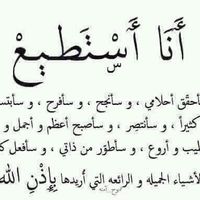 أَنَا أَسْتَطِيعْ
سأحقّق أحلامي ، و سأنجح ، و سأفرح ، و سأبتس
كثيراً ، و سأنتصِر ، و سأصبح أعظم و أجمل و
طيب و أروع ، و سأطوّر من ذاتي ، و سأفعل كل
الأشياء الجميله و الرائعه التي أريدها بِإِذْنِ الله